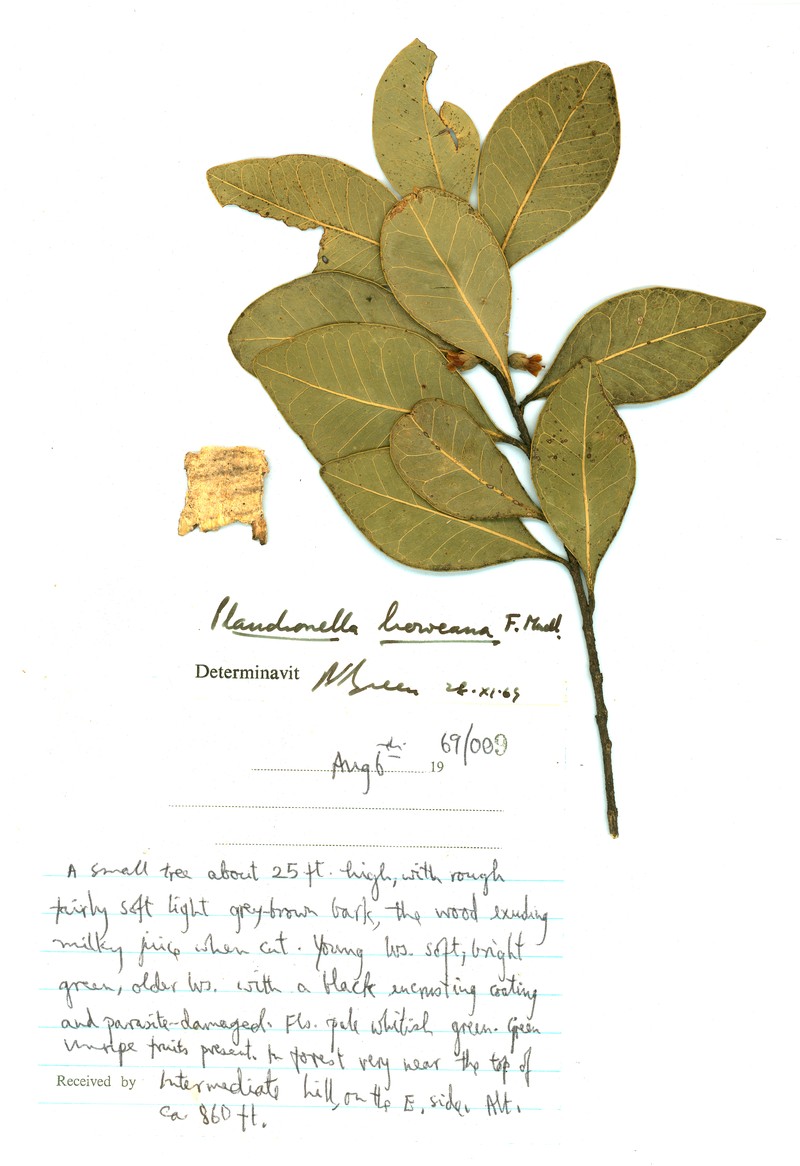 Planchonella howeana F. Muell.
Determinavit PSGreen 28·XI·69
Aug 6th 19 69/009
A small tree about 25 ft. high, with rough
fairly soft light grey-brown bark, the wood exuding
milky juice when cut. Young lvs. soft, bright
green, older lvs. with a black encrusting coating
and parasite-damaged. Fls. pale whitish green. Green
unripe fruits present. In forest very near the top of
Received by Intermediate hill, on the E. side. Alt.
ca 860 ft.